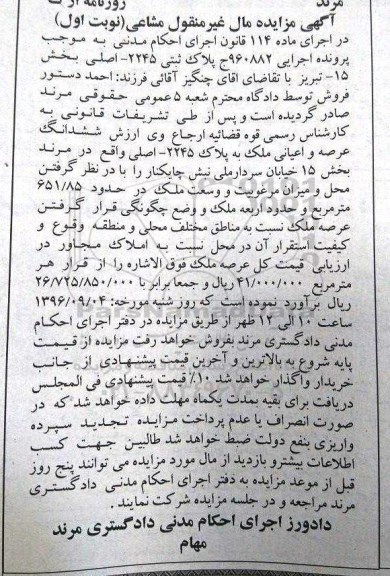 مرند روزنامه از
آگهی مزایده مال غیرمنقول مشاعی(نوبت اول)
در اجرای ماده ۱۱۴ قانون اجرای احکام مدنی به موجب
پرونده اجرایی ۹۶۰۸۸۲ج پلاک ثبتی ۲۲۴۵- اصلی بخش
۱۵- تبریز با تقاضای اقای چنگیز آقائی فرزند: احمد دستور
فروش توسط دادگاه محترم شعبه ۵عمومی حقوقی مرند
صادر گردیده است و پس از طی تشریفات قانونی به
کارشناس رسمی قوه قضائیه ارجاع وی ارزش ششدانگ
عرصه و اعیانی ملک به پلاک ۲۲۴۵- اصلی واقع در مرند
بخش ۱۵ خیابان سردارملی نبش چاپکنار را با در نظر گرفتن
محل و میزان مرغوبیت و وسعت ملک در حدود ۶۵۱/۸۵
مترمربع و حدود اربعه ملک و وضع چگونگی قرار گرفتن
عرصه ملک نسبت به مناطق مختلف محلی و منطقه وقوع و
کیفیت استقرار آن در محل نسبت به املاک مجاور در
ارزیابی قیمت کل عرصه ملک فوق الاشاره را از قرار هر
مترمربع ۴۱/۰۰۰/۰۰۰ ریال و جمعا برابر با ۲۶/۷۲۵/۸۵۰/۰۰۰
ریال برآورد نموده است که روز شنبه مورخه: ۱۳۹۶/۰۹/۰۴
ساعت ۱۰ الی ۱۲ ظهر از طریق مزایده در دفتر اجرای احکام
مدنی دادگستری مرند بفروش خواهد رفت مزایده از قیمت
پایه شروع به بالاترین و آخرین قیمت پیشنهادی از جانب
خریدار واگذار خواهد شد ۱۰٪ قیمت پیشنهادی فی المجلس
دریافت برای بقیه بمدت یکماه مهلت داده خواهد شد که در
صورت انصراف یا عدم پرداخت مزایده تجدید سپرده
واریزی بنفع دولت ضبط خواهد شد طالبین جهت کسب
اطلاعات بیشترو بازدید از مال مورد مزایده می توانند پنج روز
قبل از موعد مزایده به دفتر اجرای احکام مدنی دادگستری
مرند مراجعه و در جلسه مزایده شرکت نمایند .
دادورز اجرای احکام مدنی دادگستری مرند
مهام